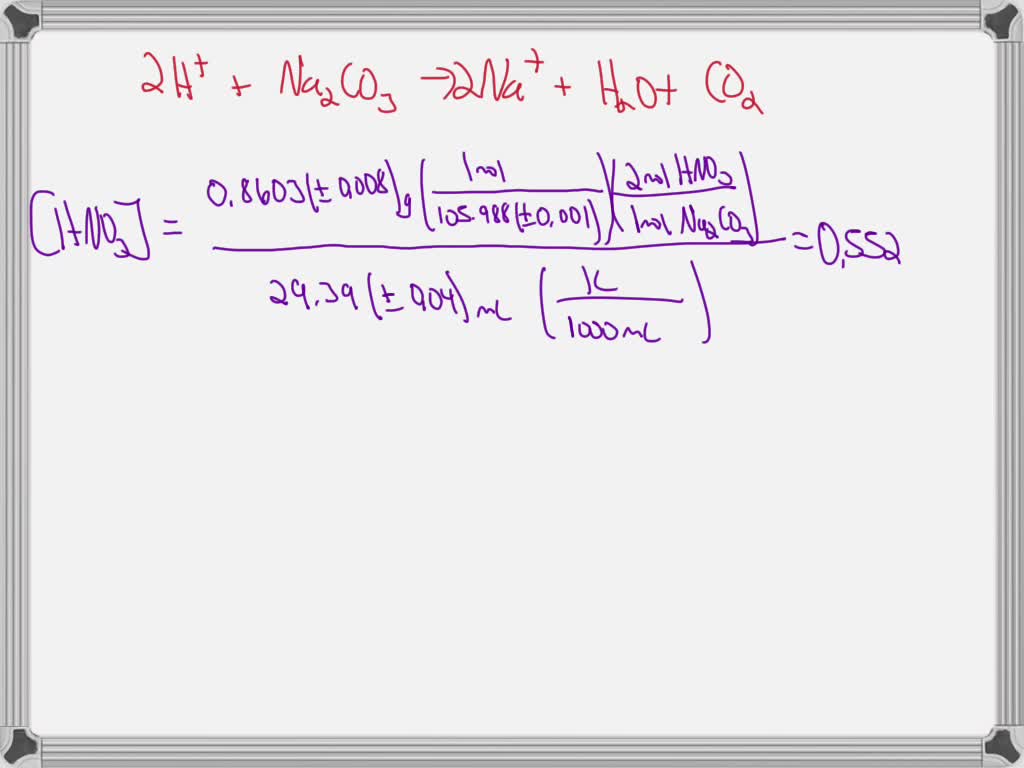 2H⁺ + Na₂CO₃ → 2Na⁺ + H₂O + CO₂
[HNO₃] = 0.8603(±0.008)g (1mol / 105.988(±0.001)) (2mol HNO₃ / 1mol Na₂CO₃) = 0.552
29.39(±0.04)mL (1L / 1000mL)